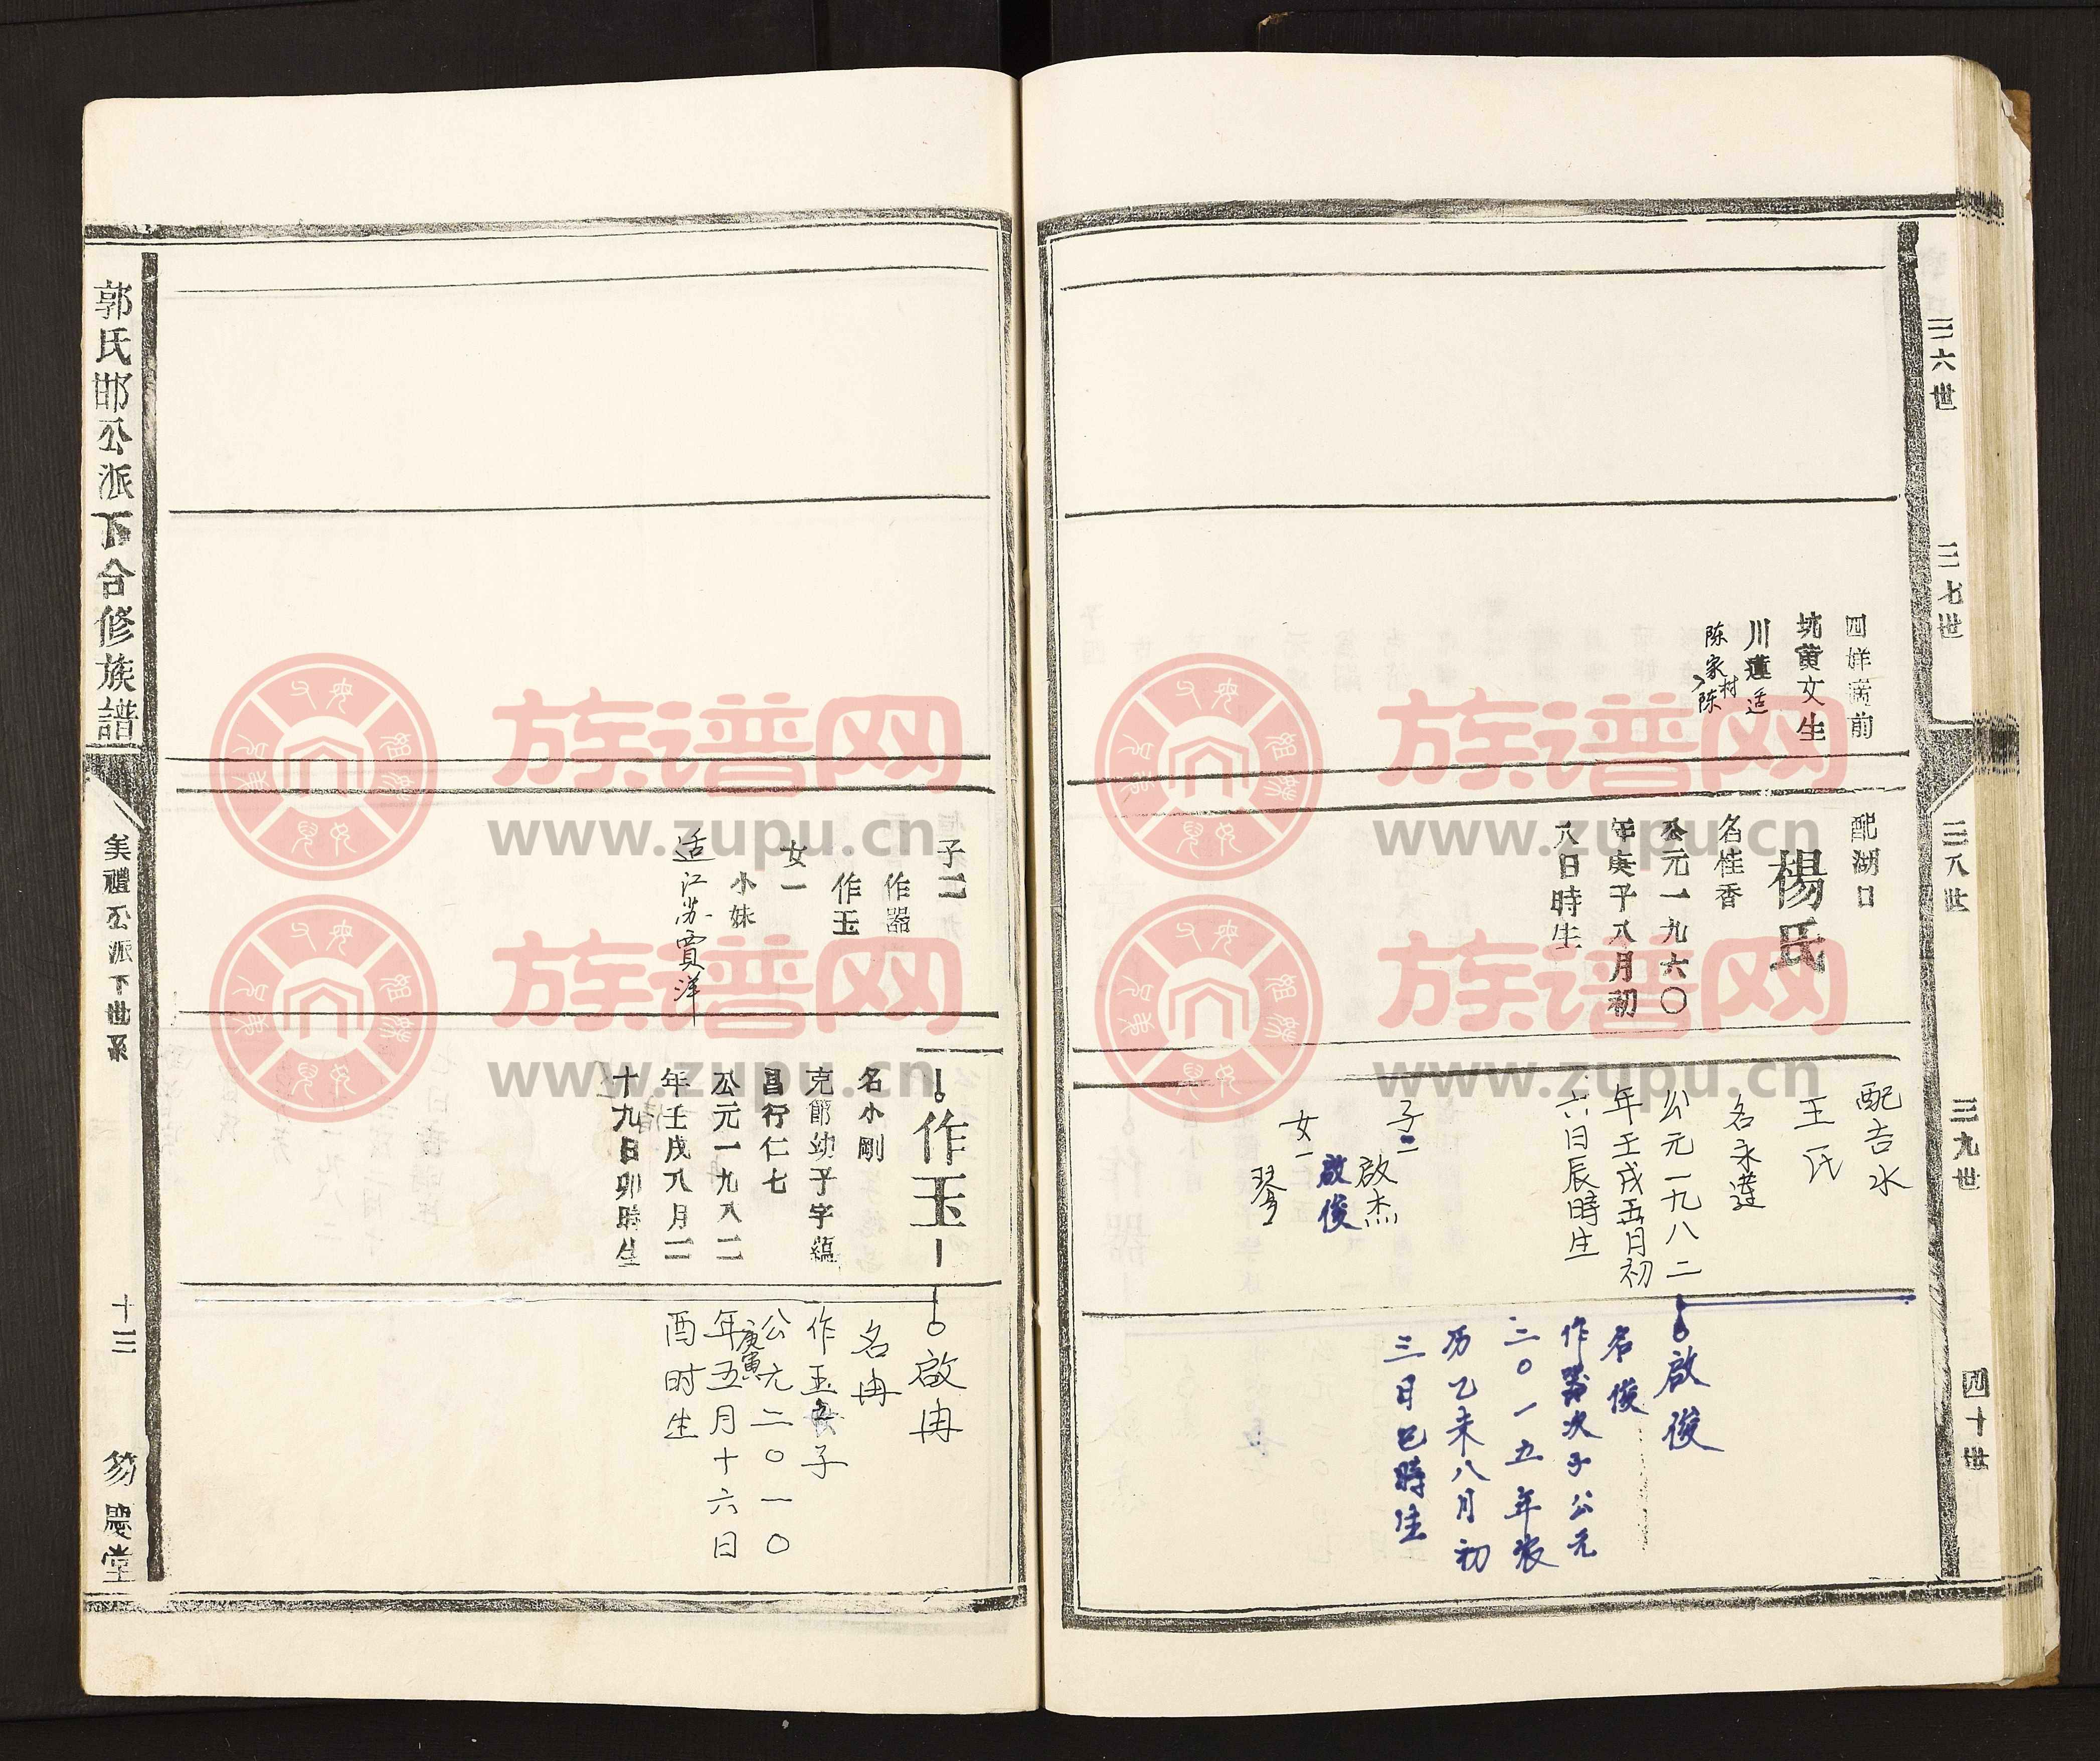 三六世
三七世
三八世
三九世
四十世
坑黄文生
川蓮适
陈家村
陈
配湖口
楊氏
名桂香
公元一九六〇
年庚子八月初
八日時生
配吉水
王氏
名永蓮
公元一九八二
年壬戌五月初
六日辰時生
子二
啟杰
啟俊
女一
琴
啟俊
名俊
作器次子公元
二〇一五年农
历乙未八月初
三日巳時生
子二
作器
作玉
女一
小妹
适江苏賈洋
作玉
名小剛
克節幼子字蘊
昌行仁七
公元一九八二
年壬戌八月二
十九日卯時生
啟冉
名冉
作玉子
公元二〇一〇
庚寅
年五月十六日
酉时生
郭氏邯公派下合修族譜
美禮公派下世系
十三
慶堂
族谱网
www.zupu.cn
族谱网
www.zupu.cn
族谱网
www.zupu.cn
族谱网
www.zupu.cn